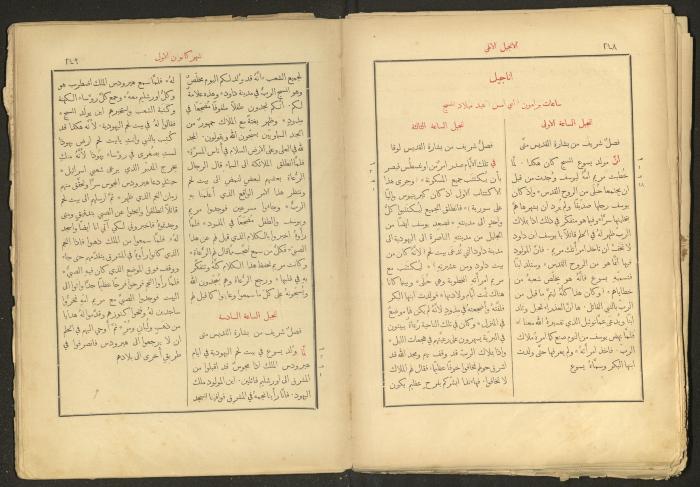 ٢٤٨
الانجيل الالهي
اناجيل
ساعات برامون اي امس عيد ميلاد المسيح
انجيل الساعة الاولى
فصلٌ شريف من بشارة القديس متى
امَّا مولد يسوع المسيح كان هكذا. لمَّا
خُطبت مريم امُّهُ ليوسف وُجدت من قبل
ان يجتمعا حبلى من الروح القدس واذ كان
يوسف رجلها صدّيقًا ولم يرد ان يشهرها همَّ
بتخليتها سرًّا وفيما هو متفكر في ذلك اذا بملاك
الرب ظهر لهُ في الحلم قائلًا يا يوسف ابن داود
لا تخف ان تاخذ امرأتك مريم. فانَّ المولود
فيها انَّما هو من الروح القدس وستلد ابنًا
فتسميهِ يسوع فانَّهُ هو يخلص شعبهُ من
خطاياهم وكان هذا كلهُ ليتم ما قيل من
الرب بالنبي القائل. ها انَّ العذراء تحبل وتلد
ابنًا ويُدعى عمَّانوئيل الذي تفسيرهُ الله معنا
فلمَّا نهض يوسف من النوم صنع كما امرهُ ملاك
الرب. فاخذ امرأتهُ ولم يعرفها حتى ولدت
ابنها البكر وسماهُ يسوع
انجيل الساعة الثالثة
فصلٌ شريف من بشارة القديس لوقا
في تلك الأيام صدر امرٌ من اوغسطس قيصر
بأن يُكتتب جميع المسكونة وجرى هذا
الاكتتاب الاول اذ كان كيرينيوس واليًا
على سورية فانطلق الجميع ليكتتبوا كلٌّ
واحدٍ الى مدينتهِ فصعد يوسف ايضًا من
الجليل من مدينة الناصرة الى اليهودية الى
مدينة داود التي تُدعى بيت لحم لانَّهُ كان من
بيت داود ومن عشيرتهِ ليُكتتب مع
مريم امرأتهِ المخطوبة وهي حبلى وبينما كانا
هناك تمت أيام ولادتها فولدت ابنها البكر
فلفَّتهُ واضجعتهُ في مذودٍ لانَّهُ لم يكن لهما موضعٌ
في المنزل وكان في تلك الناحية رعاةٌ يبيتون
في البرية يسهرون على رعيتهم في هجعات الليل
واذا بملاك الرب قد وقف بهم ومجد الله قد
اشرق حولهم فخافوا خوفًا عظيمًا فقال لهم الملاك
لا تخافوا. فهاءنذا ابشركم بفرحٍ عظيم يكون
شهر كانون الاول
٢٤٩
لجميع الشعب انَّهُ قد ولد لكم اليوم مخلّصٌ
وهو المسيح الربّ في مدينة داود وهذه علامةٌ
لكم. أنَّكم تجدون طفلًا ملفوفًا مضجعًا في
مذودٍ وظهر بغتةً مع الملاك جمهورٌ من
الجند السماويين يسبّحون الله ويقولون. المجد
لله في العلى وعلى الارض السلام في أناس المسرَّة
فلمَّا انطلق الملائكة الى السماء قال الرجال
الرعاة بعضهم لبعضٍ لنمضِ الى بيت لحم
وننظر هذا الامر الواقع الذي أعلمنا بهِ
الرب وجاءوا مسرعين فوجدوا مريم
ويوسف والطفل مضجعًا في المذود فلمَّا
رأوهُ اخبروا بالكلام الذي قيل لهم عن هذا
الصبي فكلُّ من سمع تعجَّب مما قال لهم الرعاة
وكانت مريم تحفظ هذا الكلام كلهُ وتتفكر
بهِ في قلبها ورجع الرعاة وهم يمجدون الله
ويسبحونهُ على كل ما سمعوا وعاينوا كما قيل لهم
انجيل الساعة السادسة
فصلٌ شريف من بشارة القديس متى
لمَّا ولد يسوع في بيت لحم اليهودية في ايام
هيرودس الملك اذا مجوسٌ قد اقبلوا من
المشرق الى اورشليم قائلين. اين المولود ملك
اليهود. فانَّا رأينا نجمهُ في المشرق فوافينا لنسجد
لهُ فلمَّا سمع هيرودس الملك اضطرب هو
وكلُّ اورشليم معهُ وجمع كلَّ رؤساء الكهنة
وكتبة الشعب واستخبرهم اين يولد المسيح
فقالوا لهُ في بيت لحم اليهودية. لانَّهُ هكذا قد
كُتب بالنبي وانتِ يا بيت لحم ارض يهوذا
لستِ بصغرى في رؤساء يهوذا لانَّهُ منكِ
يخرج المدبر الذي يرعى شعبي اسرائيل
حينئذٍ دعا هيرودس المجوس سرًّا وتحقَّق منهم
زمان النجم الذي ظهر ثمَّ ارسلهم الى بيت لحم
قائلًا انطلقوا وابحثوا عن الصبي بتدقيقٍ ومتى
وجدتموهُ فاخبروني لكي آتي انا ايضًا واسجد
لهُ فلمَّا سمعوا من الملك ذهبوا فاذا النجم
الذي كانوا رأوهُ في المشرق يتقدمهم حتى جاء
ووقف فوق الموضع الذي كان فيهِ الصبي
فلمَّا رأوا النجم فرحوا فرحًا عظيمًا جدًّا واتوا الى
البيت فوجدوا الصبي مع مريم امهِ فخرُّوا
ساجدين لهُ وفتحوا كنوزهم وقدَّموا لهُ هدايا
من ذهبٍ ولبانٍ ومرٍّ ثمَّ أوحي اليهم في الحلم
ان لا يرجعوا الى هيرودس فانصرفوا في
طريقٍ أخرى الى بلادهم